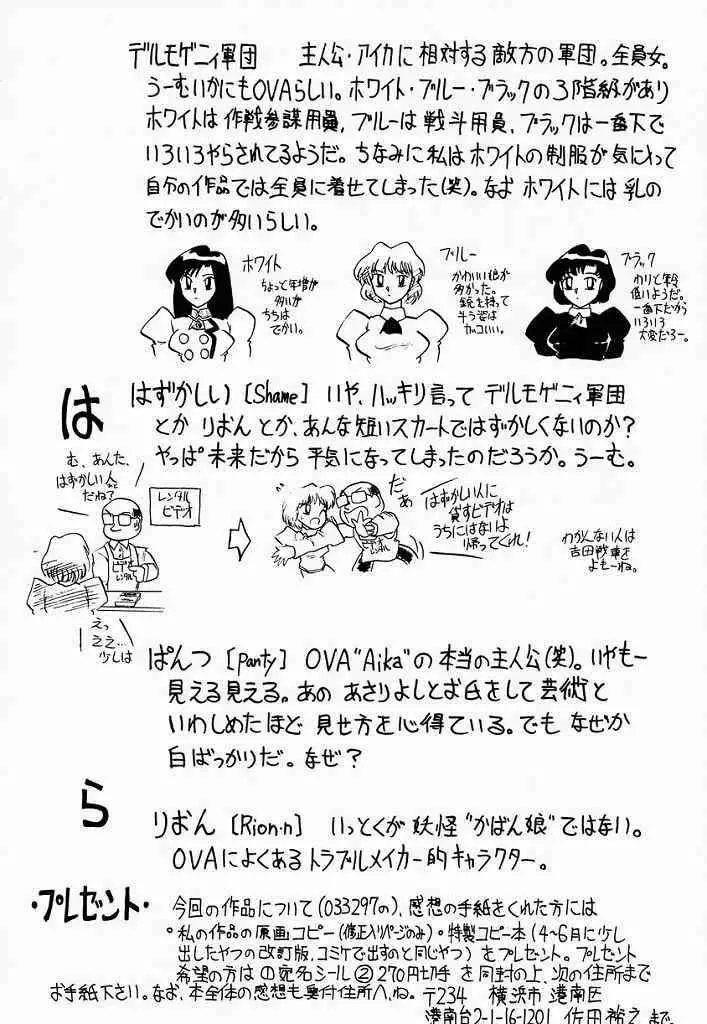 デルモゲニィ軍団　主人公・アイカに相対する敵方の軍団。全員女。
うーむいかにもOVAらしい。ホワイト・ブルー・ブラックの3階級があり
ホワイトは作戦参謀用員,ブルーは戦斗用員、ブラックは一番下で
いろいろやらされてるようだ。ちなみに私はホワイトの制服が気にいって
自分の作品では全員に着せてしまった(笑)。なお ホワイトには乳の
でかいのが多いらしい。
ホワイト
ちょっと年増が
多いが
ちちは
でかい。
ブルー
かわいい娘が
多かった。
銃を持って
斗う姿は
カッコいい。
ブラック
わりと年令
低いようだ。
一番下だから
いろいろ
大変だろー。
は
はずかしい [Shame] いや、ハッキリ言って デルモゲニィ軍団
とか りおん とか、あんな短いスカートではずかしくないのか?
やっぱ未来だから 平気になってしまったのだろうか。うーむ。
む、あんた、
はずかしい人
だねて
レンタル
ビデオ
ビデオ
レンタル
えっ
ええ…
少しは
だぁ
はずかしい人に
貸すビデオは
うちにはないよ
帰ってくれ!
わかんない人は
吉田戦車を
よもーね。
ぱんつ [panty] OVA"Aika"の本当の主人公(笑)。いやもー
見える見える。あの あさりよしとお氏をして芸術と
いわしめたほど 見せ方を心得ている。でも なぜか
白ばっかりだ。なぜ?
ら
りおん [Rion・n] いっとくが妖怪"かばん娘"ではない。
OVAによくあるトラブルメイカー的キャラクター。
・プレゼント・
今回の作品について(033297の)、感想の手紙をくれた方には
◦私の作品の原画コピー(修正入りページのみ)・特製コピー本(4~6月に少し
出したやつの改訂版、コミケで出すのと同じやつ)をプレゼント。プレゼント
希望の方は ①宛名シール ②270円切手 を同封の上、次の住所まで
お手紙下さい。なお、本全体の感想も奥付住所へ、ね。〒234 横浜市港南区
港南台2-1-16-1201 佐田裕之まで。